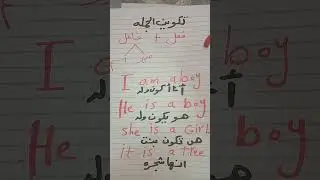 تكوين الجمله
فعل + فاعل
I am a boy
أنا أكون ولد
He is a boy
هو يكون ولد
she is a GirL
هي تكون بنت
it is a tree
انها شجره